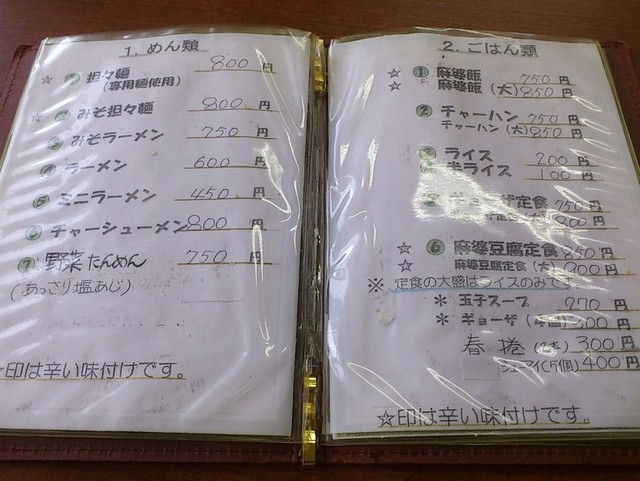 1. めん類
☆ 担々麺 800円
(専用麺使用)
みそ担々麺 800円
みそラーメン 750円
ラーメン 600円
5 ミニラーメン 450円
6 チャーシューメン 800円
7 野菜たんめん 750円
(あっさり塩あじ)
☆印は辛い味付けです。
2. ごはん類
☆ 1 麻婆飯 750円
☆ 麻婆飯 (大) 850円
2 チャーハン 750円
チャーハン (大) 850円
ライス 200円
半ライス 100円
定食 750円
定食 円
☆ 6 麻婆豆腐定食 850円
☆ 麻婆豆腐定食 (大) 900円
※ 定食の大盛はライスのみです
* 玉子スープ 270円
* ギョーザ 300円
春捲 (2本) 300円
シューマイ 400円
☆印は辛い味付けです。